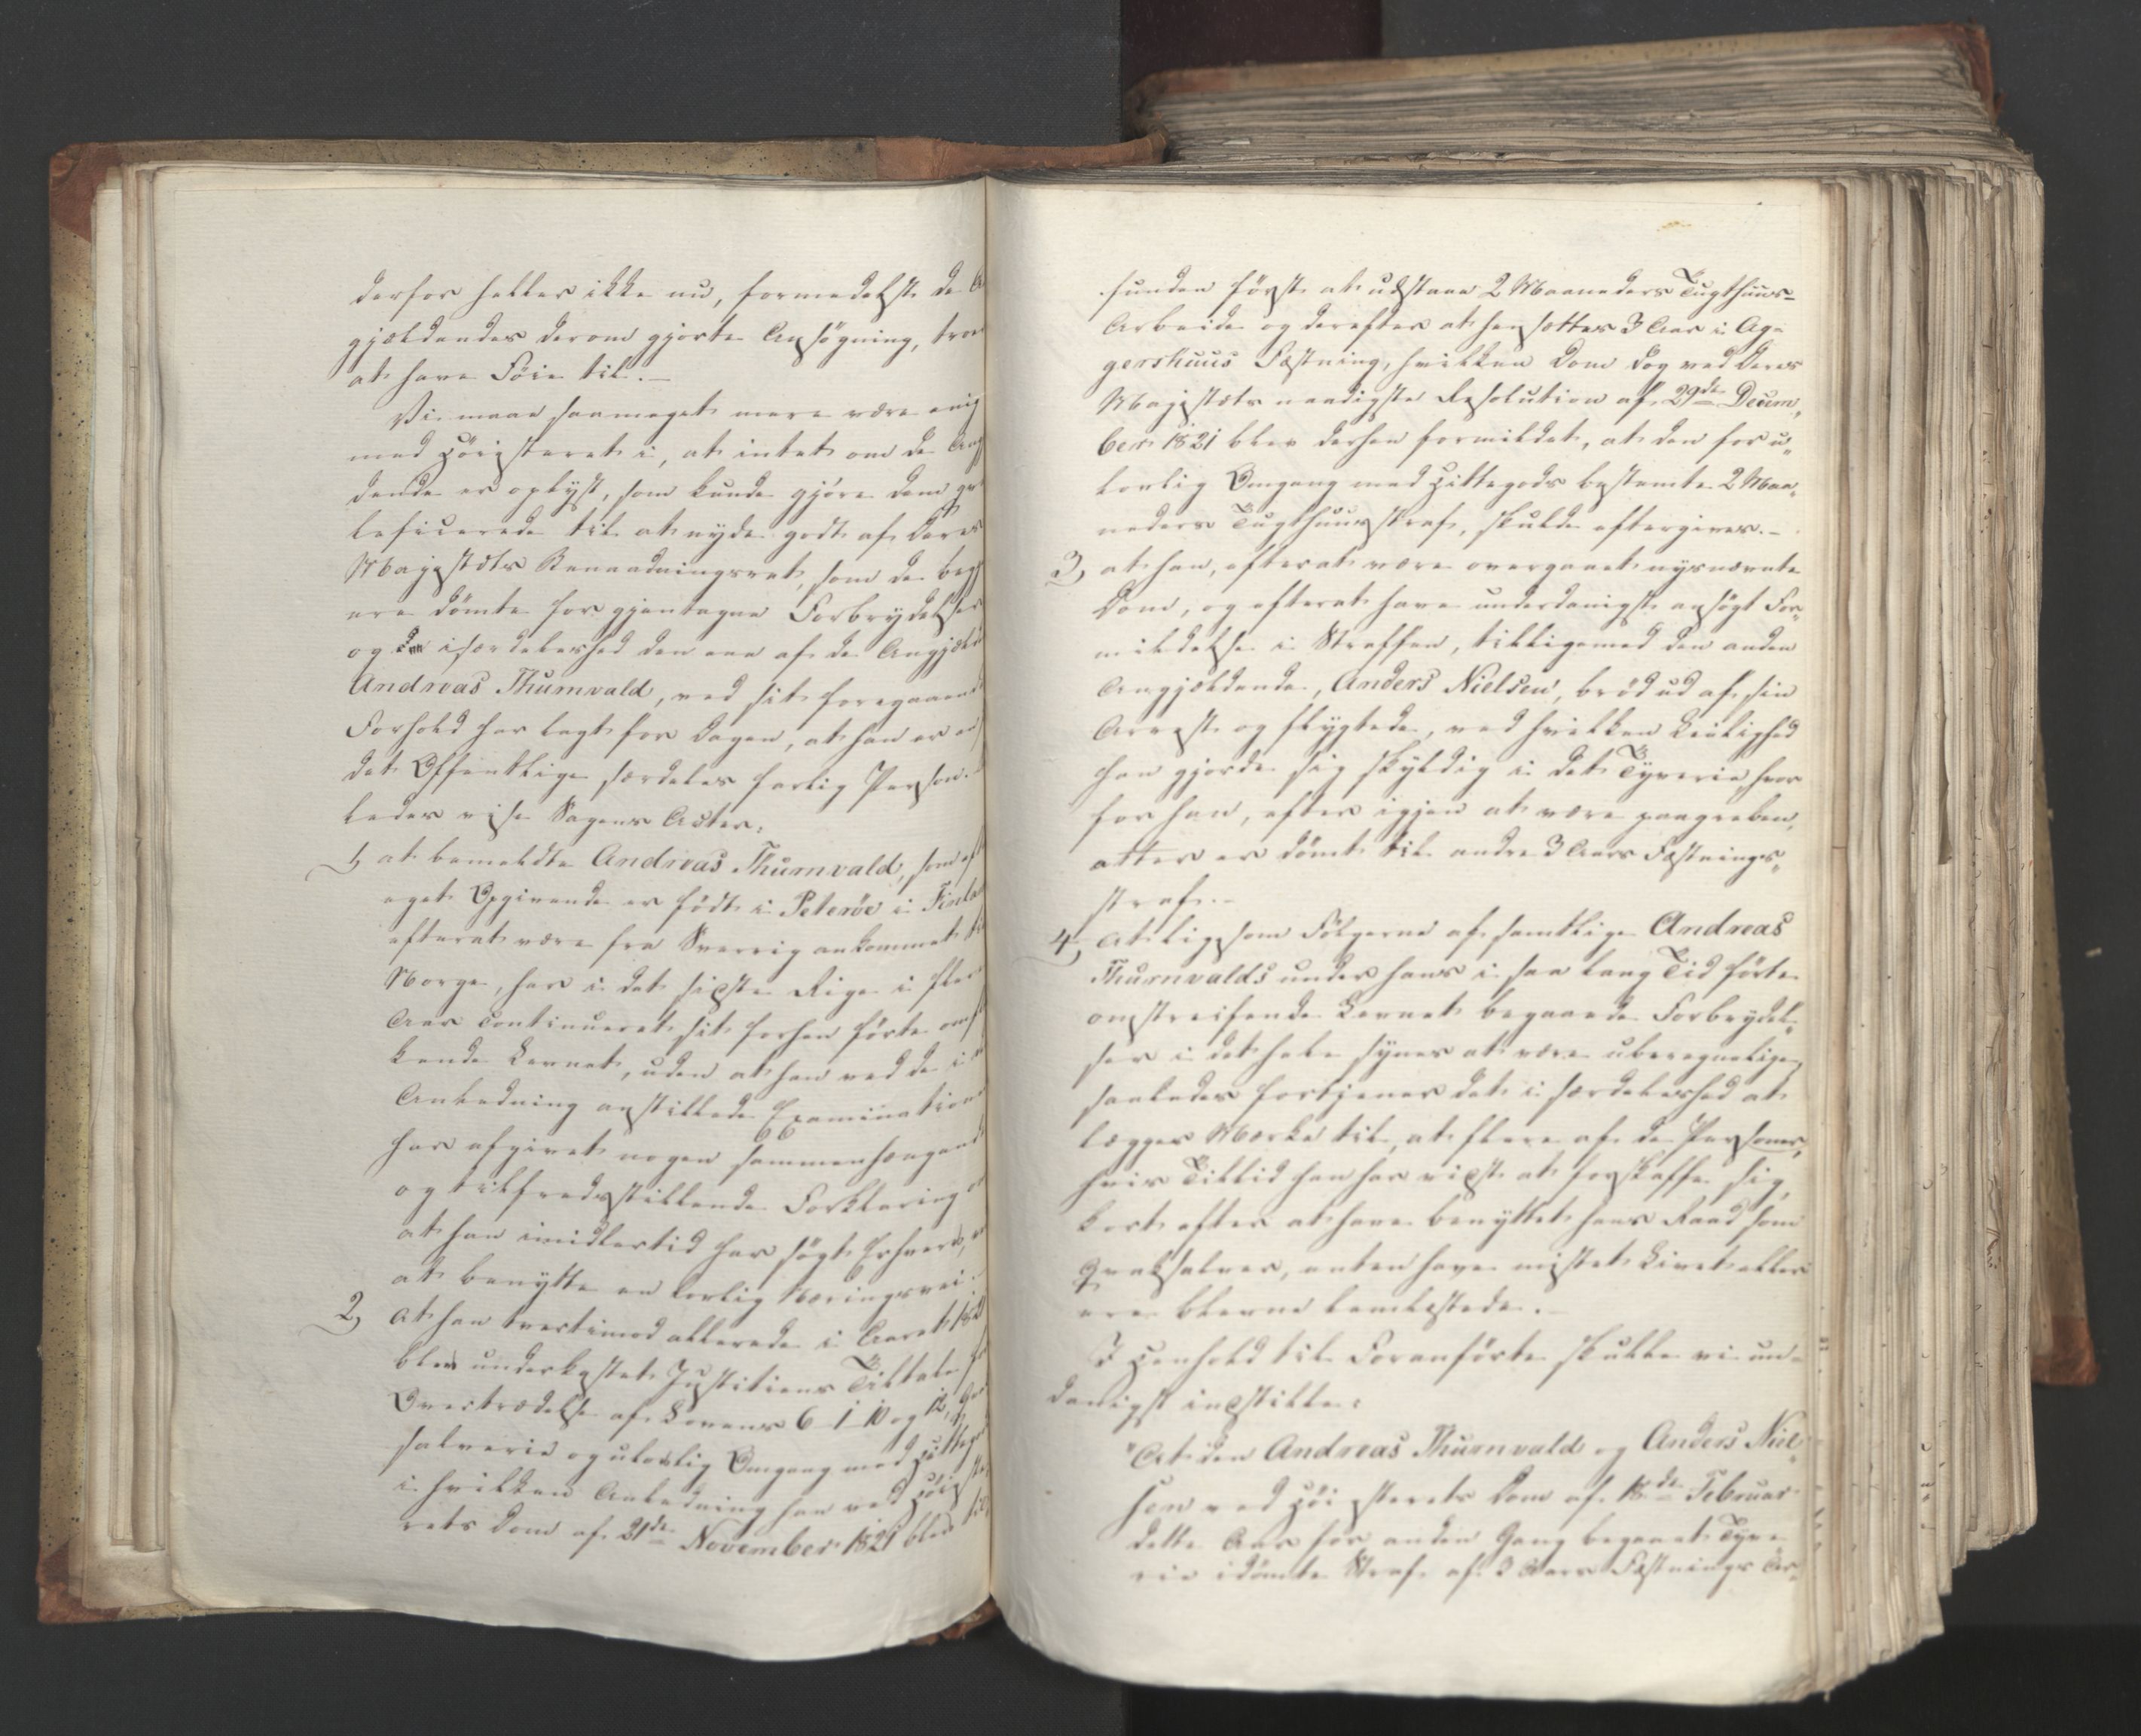 derfor heller ikke nu, formedelst de A
gjældendes derom gjorte Ansøgning, troe
at have Föie til. —
Vi maae saameget mere være enig
med Höiesteret i, at intet om de Ang
dende er oplyst, som kunde gjöre dem
lificerede til at nyde godt af Deres
Majestæts Benaadningsret, som de beg
ere dömte for gjentagne Forbrydelser
og isærdeleshed den ene af de Angjæld
Andreas Thurnvald, ved sit foregaaende
Forhold har lagt for Dagen, at han er en
det Offentlige særdeles farlig Person.
ledes vise Sagens Acter:
1, at bemeldte Andreas Thurnvald, som eft
eget Opgivende er födt i Peteröe i Finla
efterat være fra Sverrig ankommet til
Norge, har i det sidste Rige i flere
Aar continueret sit forhen förte omfl
kende Levnet, uden at han ved de i
Anledning anstillede Examinationer
har afgivet nogen sammenhængende
og tilfredsstillende Forklaring
at han imidlertid har sögt Erhverv,
at benytte en lovlig Næringsvei.
2, at han tvertimod allerede i Aaret 182
blev underkastet Justitiens Tiltale for
Overtrædelse af Lovens 6-1-10 og 12, Qvak
salverie og ulovlig Omgang med Hittegods
i hvilken Anledning han ved Höieste
rets Dom af 21de November 1821 blev til
funden först at udstaae 2 Maaneders Tugthuus-
Arbeide og derefter at hensættes 3 Aar i Ag-
gershuus Fæstning, hvilken Dom dog ved Deres
Majestæts naadigste Resolution af 29de Decem„
ber 1821 blev derhen formildet, at den for u„
lovlig Omgang med Hittegods bestemte 2 Maa„
neders Tugthuusstraf, skulde eftergives. —
3, at han, efterat være overgaaet nysnævnte
Dom, og efterat have underdanigst ansögt For„
mildelse i Straffen, tilligemed den anden
Angjældende, Anders Nielsen, bröd ud af sin
Arrest og flygtede, ved hvilken Leilighed
han gjorde sig skyldig i det Tyverie, hvor
for han, efter igjen at være paagreben,
atter er dömt til andre 3 Aars Fæstnings„
straf. —
4, at ligesom Fölgerne af samtlige Andreas
Thurnvalds under hans i saa lang Tid förte
omstreifende Levnet begaaede Forbrydel„
ser i det hele synes at være uberegnelige,
saaledes fortjener det i særdeleshed at
lægges Mærke til, at flere af de Personer,
hvis Tillid han har vidst at forskaffe sig,
kort efter at have benyttet hans Raad som
Qvaksalver, enten have mistet Livet eller
ere blevne lemlæstede. —
I Henhold til Foranförte skulle vi un-
danigst indstille:
"At den Andreas Thurnvald og Anders Niel„
sen ved Höiesterets Dom af 18de Februar
dette Aar for anden Gang begaaet Tyve
rie idömte Straf af 3 Aars Fæstnings Ar„